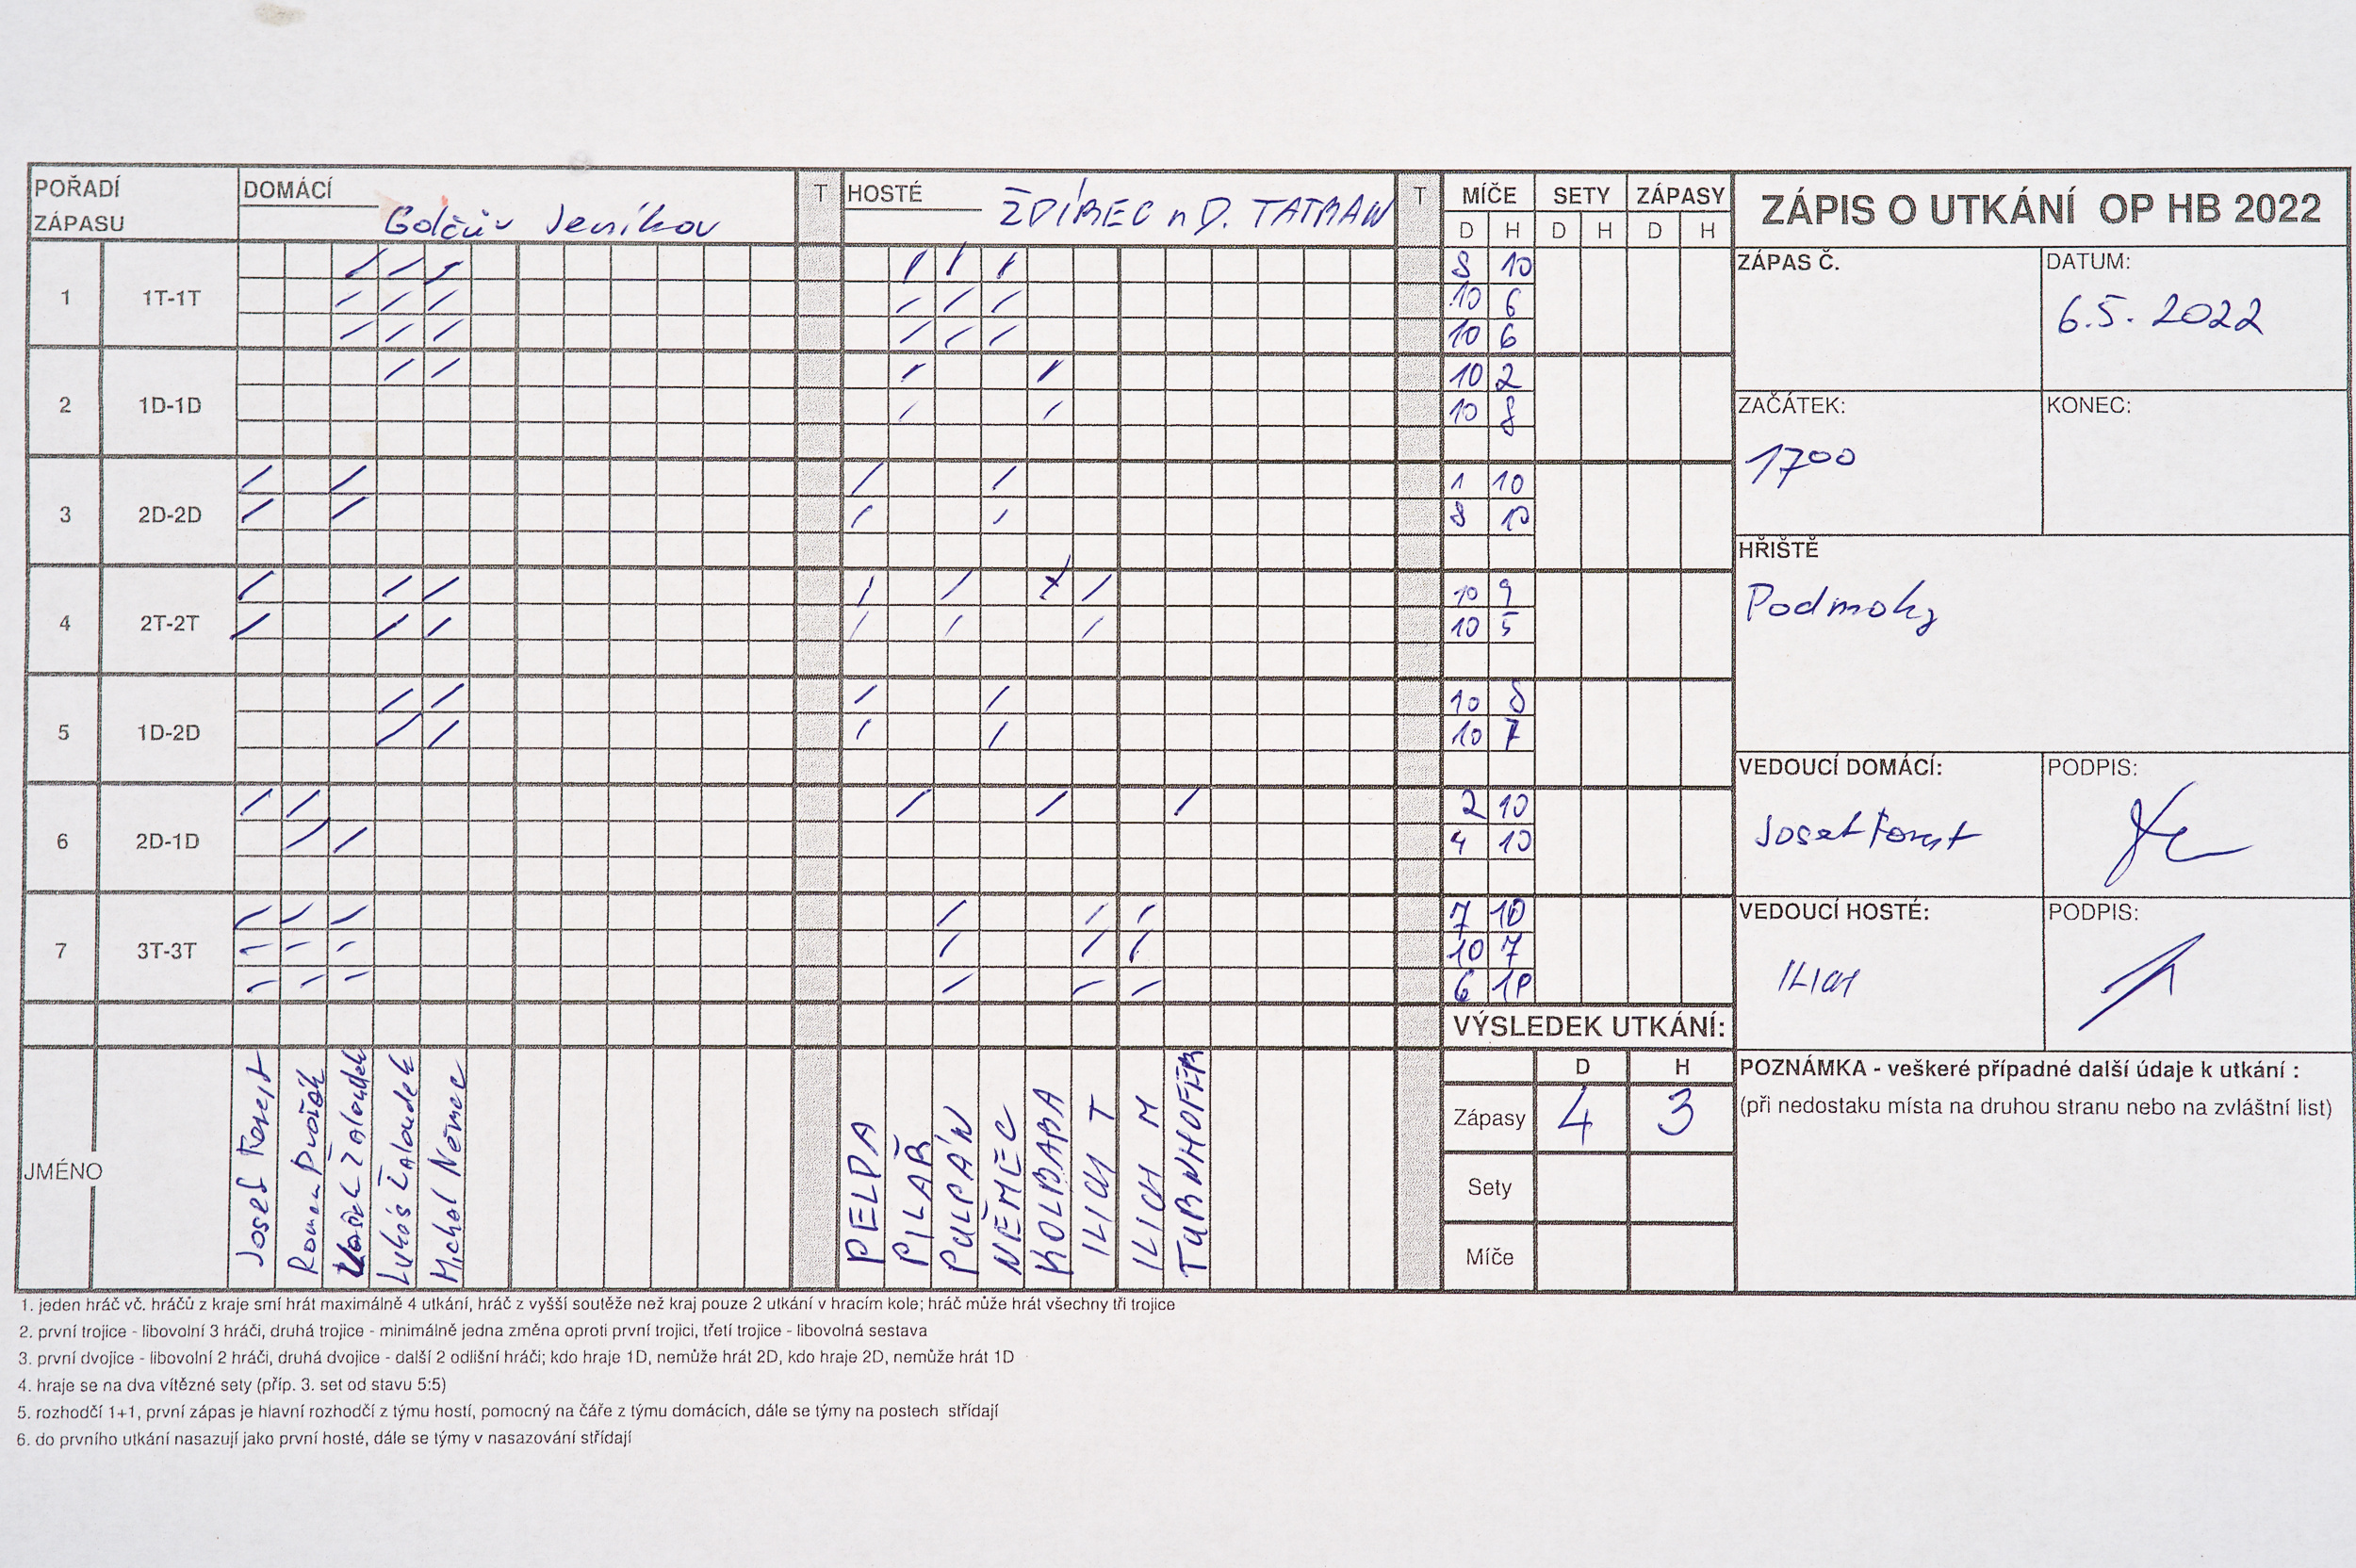 POŘADÍ ZÁPASU DOMÁCÍ Golčův Jeníkov T HOSTÉ ŽDÍREC n D. TATRAN T MÍČE SETY ZÁPASY
D H D H D H
ZÁPIS O UTKÁNÍ OP HB 2022
1 1T-1T 8 10
10 6
10 6
2 1D-1D 10 2
10 8
3 2D-2D 1 10
8 10
4 2T-2T 10 9
10 5
5 1D-2D 10 8
10 7
6 2D-1D 2 10
4 10
7 3T-3T 7 10
10 7
6 10
ZÁPAS Č. DATUM:
6.5. 2022
ZAČÁTEK: KONEC:
1700
HŘIŠTĚ
Podmoky
VEDOUCÍ DOMÁCÍ: PODPIS:
Josef Forst
VEDOUCÍ HOSTÉ: PODPIS:
ILICH
VÝSLEDEK UTKÁNÍ:
D H
Zápasy 4 3
Sety
Míče
POZNÁMKA - veškeré případné další údaje k utkání :
(při nedostaku místa na druhou stranu nebo na zvláštní list)
JMÉNO
Josef Forst
Roman Dvořák
Žaloudek
Lukáš Žaloudek
Michal Němec
PELDA
PILAŘ
PULPÁN
NĚMEC
KOLDABA
ILICH T
ILICH M
TURNHOFER
1. jeden hráč vč. hráčů z kraje smí hrát maximálně 4 utkání, hráč z vyšší soutěže než kraj pouze 2 utkání v hracím kole; hráč může hrát všechny tři trojice
2. první trojice - libovolní 3 hráči, druhá trojice - minimálně jedna změna oproti první trojici, třetí trojice - libovolná sestava
3. první dvojice - libovolní 2 hráči, druhá dvojice - další 2 odlišní hráči; kdo hraje 1D, nemůže hrát 2D, kdo hraje 2D, nemůže hrát 1D
4. hraje se na dva vítězné sety (příp. 3. set od stavu 5:5)
5. rozhodčí 1+1, první zápas je hlavní rozhodčí z týmu hostí, pomocný na čáře z týmu domácích, dále se týmy na postech střídají
6. do prvního utkání nasazují jako první hosté, dále se týmy v nasazování střídají